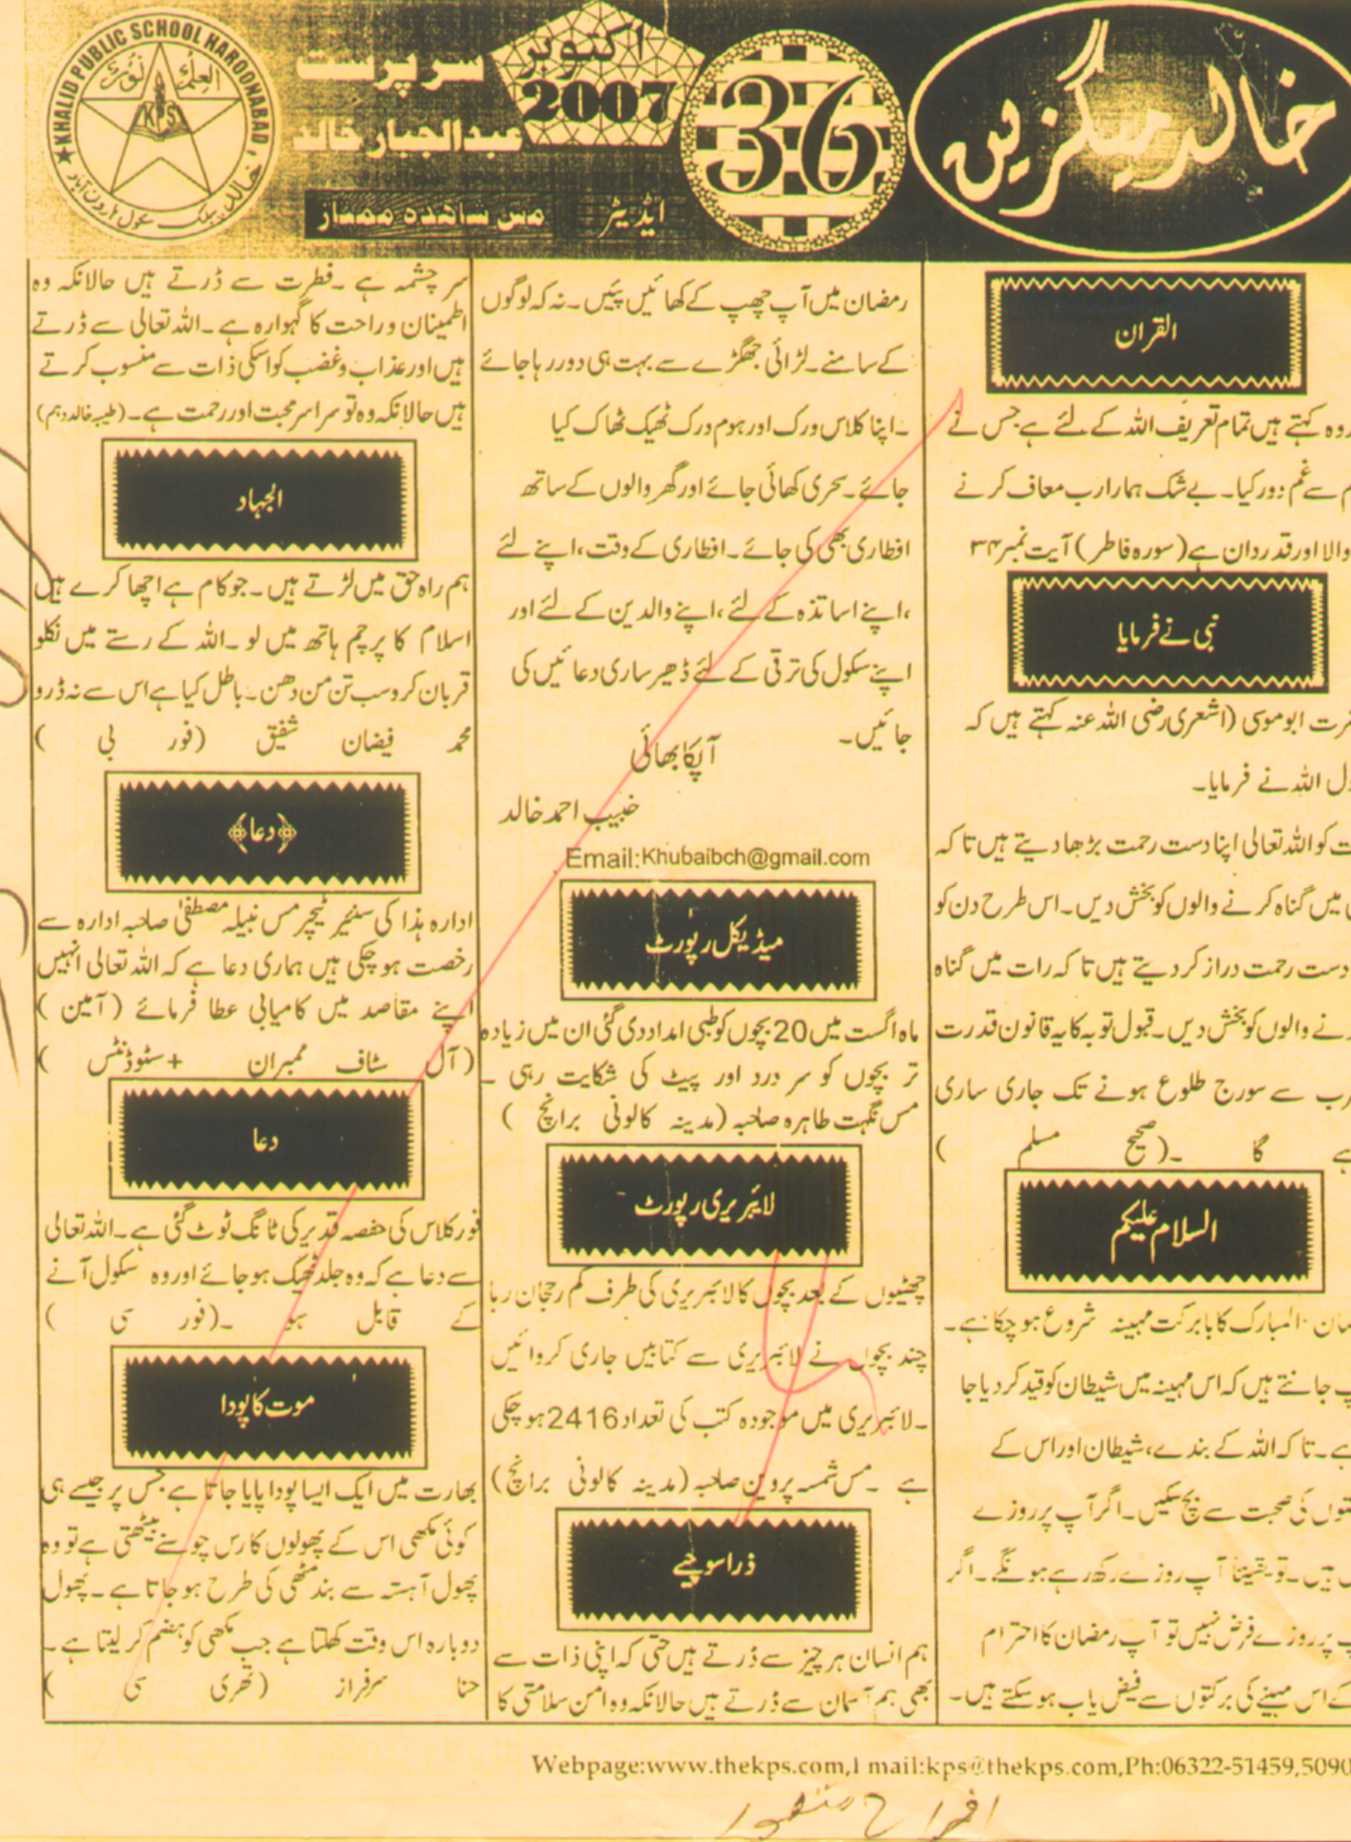 خالد میگزین
36
اکتوبر
2007
سرپرست
عبدالجبار خالد
ایڈیٹر
مس شاهده ممتاز
KHALID PUBLIC SCHOOL HAROONABAD
العلم نور
KPS
خالد پبلک سکول ہارون آباد
القران
وہ کہتے ہیں تمام تعریف اللہ کے لئے ہے جس نے
سے غم دور کیا۔ بے شک ہمارا رب معاف کرنے
والا اور قدردان ہے (سورہ فاطر) آیت نمبر ۳۴
نبی نے فرمایا
ابوموسی (اشعری رضی اللہ عنہ کہتے ہیں کہ
اللہ نے فرمایا۔
کو اللہ تعالی اپنا دست رحمت بڑھا دیتے ہیں تا کہ
میں گناہ کرنے والوں کو بخش دیں۔ اس طرح دن کو
دست رحمت دراز کر دیتے ہیں تا کہ رات میں گناہ
والوں کو بخش دیں۔ قبول توبہ کا یہ قانون قدرت
سے سورج طلوع ہونے تک جاری ساری
گا ۔(صحیح مسلم )
السلام علیکم
المبارک کا بابرکت مہینہ شروع ہو چکا ہے۔
جانتے ہیں کہ اس مہینہ میں شیطان کو قید کر دیا جا
ہے۔ تا کہ اللہ کے بندے، شیطان اور اس کے
کی صحبت سے بچ سکیں۔ اگر آپ پر روزے
ہیں۔ تو یقینا آپ روزے رکھ رہے ہونگے۔ اگر
پر روزے فرض نہیں تو آپ رمضان کا احترام
کے اس مہینے کی برکتوں سے فیض یاب ہو سکتے ہیں۔
رمضان میں آپ چھپ کے کھائیں پئیں۔ نہ کہ لوگوں
کے سامنے۔ لڑائی جھگڑے سے بہت ہی دور رہا جائے
۔ اپنا کلاس ورک اور ہوم ورک ٹھیک ٹھاک کیا
جائے۔ سحری کھائی جائے اور گھر والوں کے ساتھ
افطاری بھی کی جائے۔ افطاری کے وقت، اپنے لئے
،اپنے اساتذہ کے لئے ،اپنے والدین کے لئے اور
اپنے سکول کی ترقی کے لئے ڈھیر ساری دعائیں کی
جائیں۔
آپکا بھائی
خبیب احمد خالد
Email:Khubaibch@gmail.com
میڈیکل رپورٹ
ماہ اگست میں 20 بچوں کو طبی امداد دی گئی ان میں زیادہ
تر بچوں کو سر درد اور پیٹ کی شکایت رہی ۔
مس نگہت طاہرہ صاحبہ (مدینہ کالونی برانچ )
لائبریری رپورٹ
چھٹیوں کے بعد بچوں کا لائبریری کی طرف کم رجحان رہا
چند بچوں نے لائبریری سے کتابیں جاری کروائیں
۔ لائبریری میں موجودہ کتب کی تعداد 2416 ہو چکی
ہے ۔ مس شمسہ پروین صاحبہ (مدینہ کالونی برانچ)
ذرا سوچیے
ہم انسان ہر چیز سے ڈرتے ہیں حتی کہ اپنی ذات سے
بھی ہم آسمان سے ڈرتے ہیں حالانکہ وہ امن سلامتی کا
سر چشمہ ہے ۔ فطرت سے ڈرتے ہیں حالانکہ وہ
اطمینان و راحت کا گہوارہ ہے۔ اللہ تعالی سے ڈرتے
ہیں اور عذاب و غضب کو اسکی ذات سے منسوب کرتے
ہیں حالانکہ وہ تو سراسر محبت اور رحمت ہے۔ (طیبہ خالد دہم)
الجہاد
ہم راہ حق میں لڑتے ہیں ۔ جو کام ہے اچھا کرے ہیں
اسلام کا پرچم ہاتھ میں لو ۔ اللہ کے رستے میں نکلو
قربان کرو سب تن من دھن۔ باطل کیا ہے اس سے نہ ڈرو
محمد فیضان شفیق (فور بی )
دعا
ادارہ ہذا کی سنئیر ٹیچر مس نبیلہ مصطفیٰ صاحبہ ادارہ سے
رخصت ہو چکی ہیں ہماری دعا ہے کہ اللہ تعالی انہیں
اپنے مقاصد میں کامیابی عطا فرمائے (آمین )
(آل سٹاف ممبران + سٹوڈنٹس )
دعا
فور کلاس کی حفصہ قدیر کی ٹانگ ٹوٹ گئی ہے۔ اللہ تعالی
سے دعا ہے کہ وہ جلد ٹھیک ہو جائے اور وہ سکول آنے
کے قابل ہو ۔(فور سی )
موت کا پودا
بھارت میں ایک ایسا پودا پایا جاتا ہے جس پر جیسے ہی
کوئی مکھی اس کے پھولوں کا رس چوسنے بیٹھتی ہے تو وہ
پھول آہستہ سے بند مٹھی کی طرح ہو جاتا ہے ۔ پھول
دوبارہ اس وقت کھلتا ہے جب مکھی کو ہضم کر لیتا ہے ۔
حنا سرفراز (تھری سی )
Webpage:www.thekps.com,E mail:kps@thekps.com,Ph:06322-51459,5090